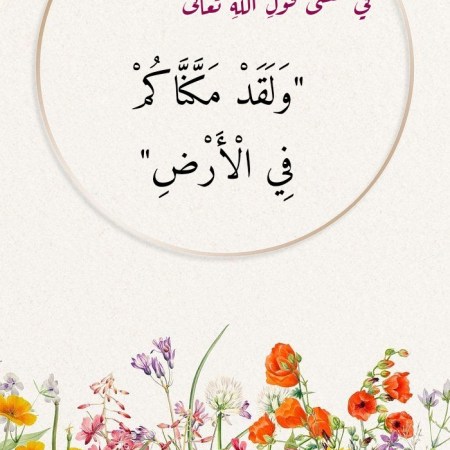 في معنى قول اللهِ تعالى
"وَلَقَدْ مَكَّنَّاكُمْ
فِي الْأَرْضِ"